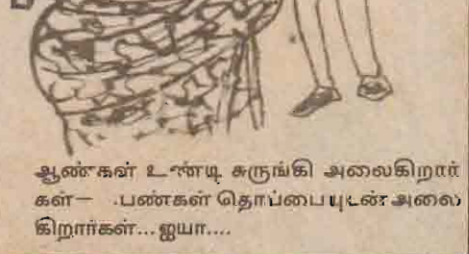 ஆண்கள் உண்டி சுருங்கி அலைகிறார்
கள்— பெண்கள் தொப்பையுடன் அலை
கிறார்கள்...ஐயா....